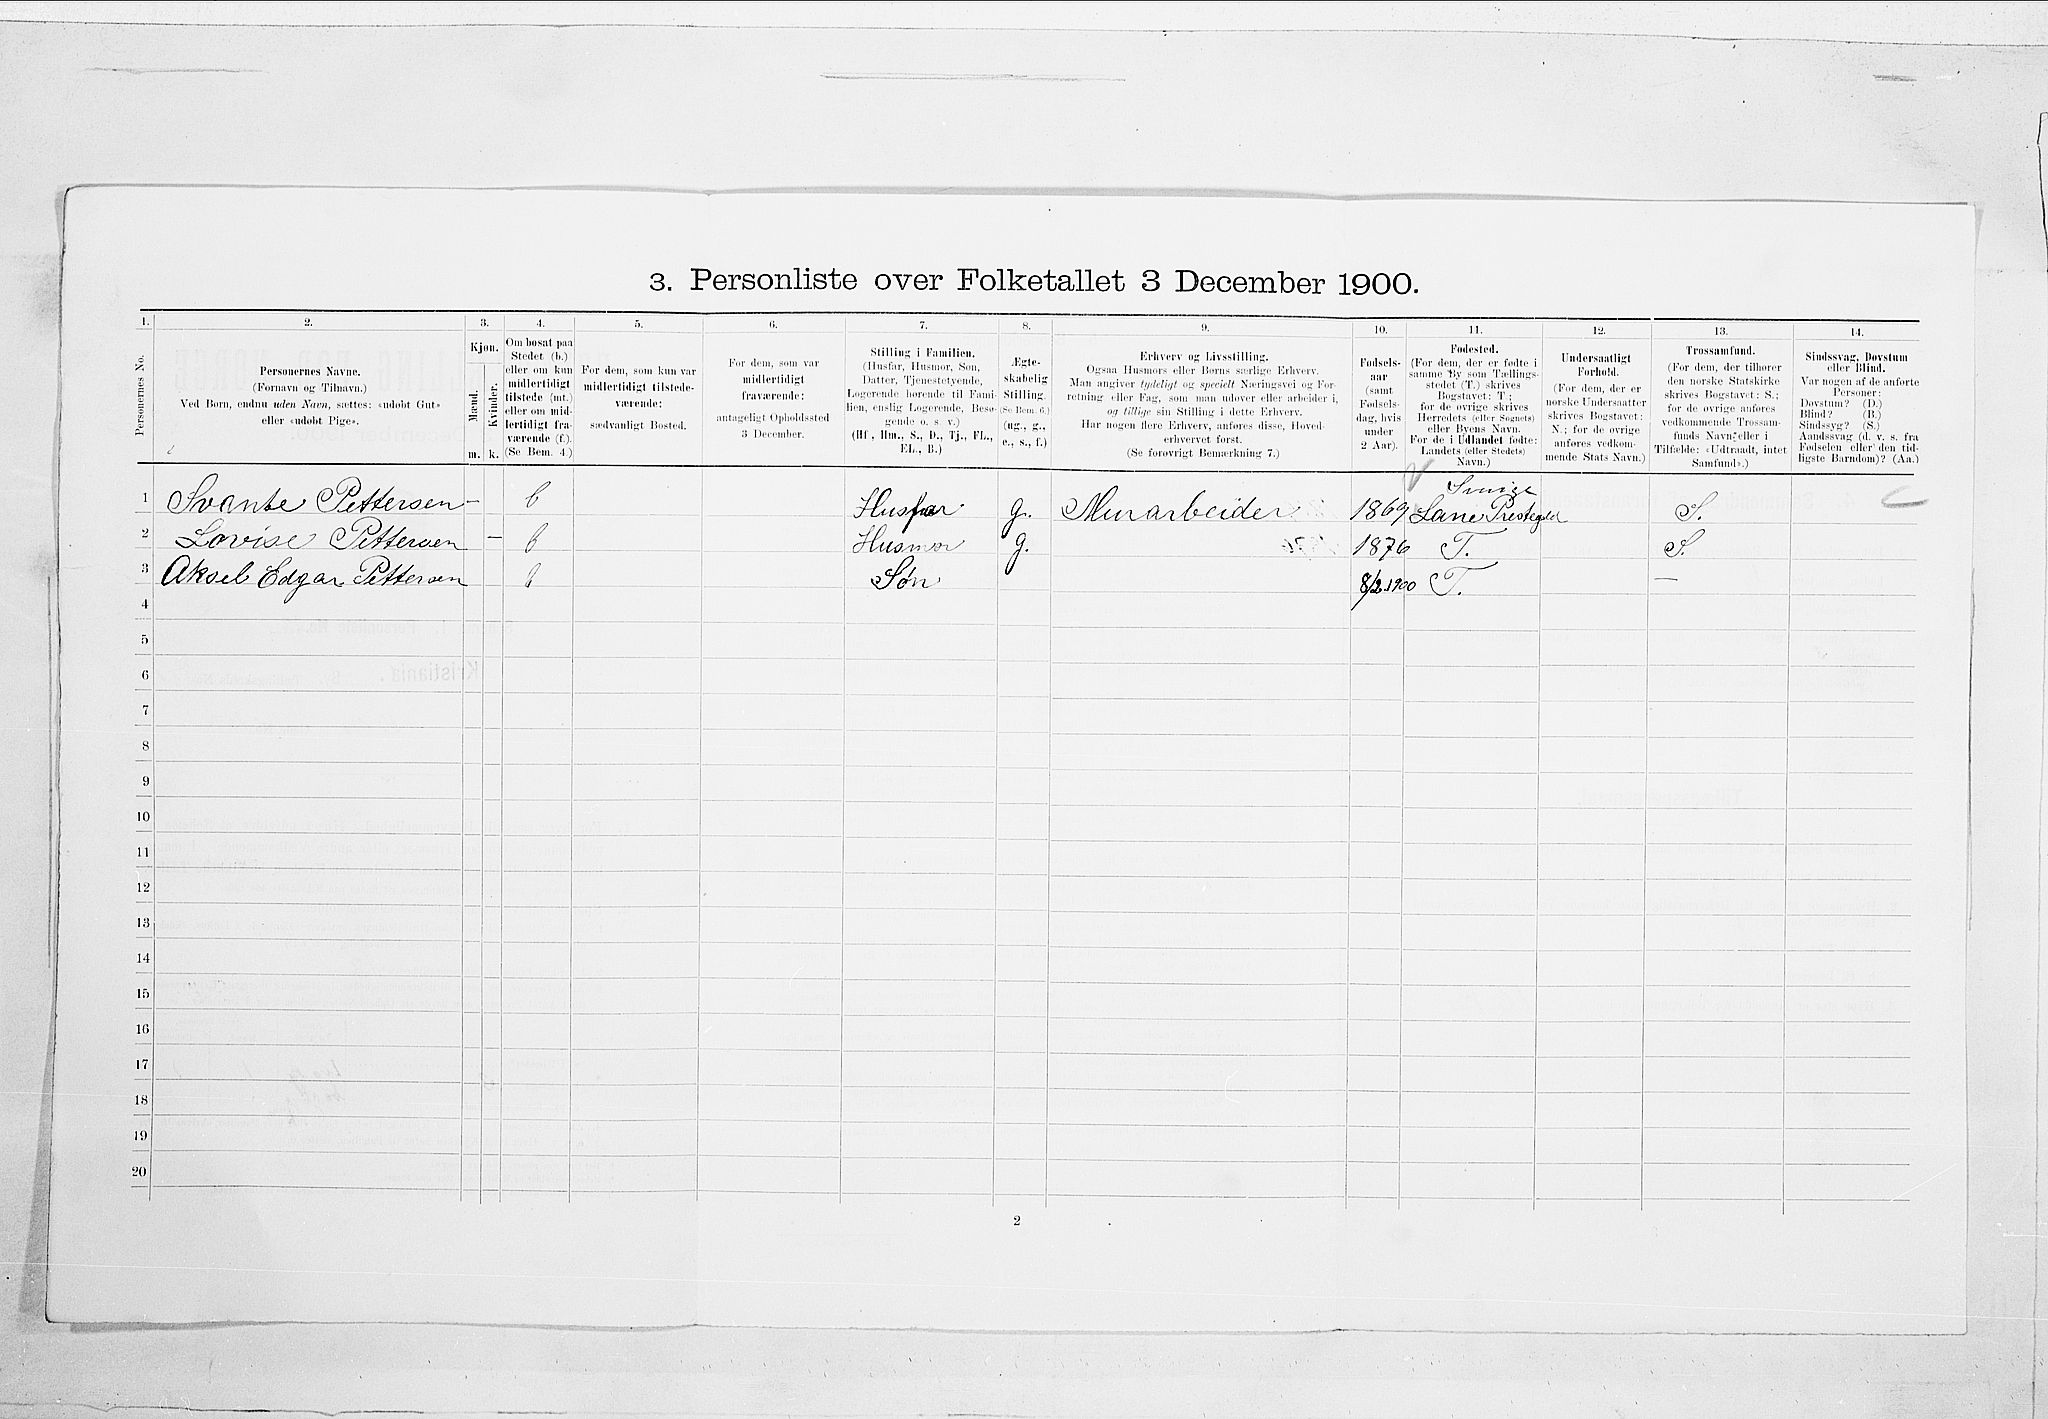 3. Personliste over Folketallet 3 December 1900.
1. 2. 3. 4. 5. 6. 7. 8. 9. 10. 11. 12. 13. 14.
Personernes No.
Personernes Navne.
(Fornavn og Tilnavn.)
Ved Børn, endnu uden Navn, sættes: «udøbt Gut»
eller «udøbt Pige».
Kjøn.
Mænd.
Kvinder.
m. k.
Om bosat paa
Stedet (b.)
eller om kun
midlertidigt
tilstede (mt.)
eller om mid-
lertidigt fra-
værende (f.).
(Se Bem. 4.)
For dem, som kun var
midlertidigt tilstede-
værende:
sædvanligt Bosted.
For dem, som var
midlertidigt
fraværende:
antageligt Opholdssted
3 December.
Stilling i Familien.
(Husfar, Husmor, Søn,
Datter, Tjenestetyende,
Logerende hørende til Fami-
lien, enslig Logerende, Besø-
gende o. s. v.)
(Hf., Hm., S., D., Tj., FL.,
EL., B.)
Ægte-
skabelig
Stilling.
(Se Bem. 6.)
(ug., g.,
e., s., f.)
Erhverv og Livsstilling.
Ogsaa Husmors eller Børns særlige Erhverv.
Man angiver tydeligt og specielt Næringsvei og For-
retning eller Fag, som man udover eller arbeider i,
og tillige sin Stilling i dette Erhverv.
Har nogen flere Erhverv, anføres disse, Hoved-
erhvervet først.
(Se forøvrigt Bemærkning 7.)
Fødsels-
aar
(samt
Fødsels-
dag, hvis
under
2 Aar).
Fødested.
(For dem, der er fødte i
samme By som Tællings-
stedet (T.) skrives
Bogstavet: T.;
for de øvrige skrives
Herredets (eller Sognets)
eller Byens Navn.
For de i Udlandet fødte:
Landets (eller Stedets)
Navn.)
Undersaatligt
Forhold.
(For dem, der er
norske Undersaatter
skrives Bogstavet:
N.; for de øvrige
anføres vedkom-
mende Stats Navn.)
Trossamfund.
(For dem, der tilhører
den norske Statskirke
skrives Bogstavet: S.;
for de øvrige anføres
vedkommende Trossam-
funds Navn; eller i
Tilfælde: «Udtraadt, intet
Samfund».)
Sindssvag, Døvstum
eller Blind.
Var nogen af de anførte
Personer:
Døvstum? (D.)
Blind? (B.)
Sindssyg? (S.)
Aandssvag (d. v. s. fra
Fødselen eller den tid-
ligste Barndom)? (Aa.)
1 Svante Pettersen – b Husfar g. Murarbeider 1869 Lane Prestegjeld S.
2 Lovise Pettersen – b Husmor g. 1876 T. S.
3 Aksel Edgar Pettersen b Søn 8/2 1900 T. —
4
5
6
7
8
9
10
11
12
13
14
15
16
17
18
19
20
2